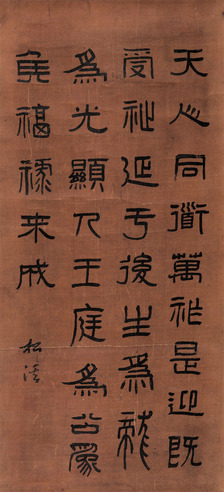 天心同衟萬祚是迎既
受祉延于後生為龍
為光顯入王庭為公為
矦福祿來成
松